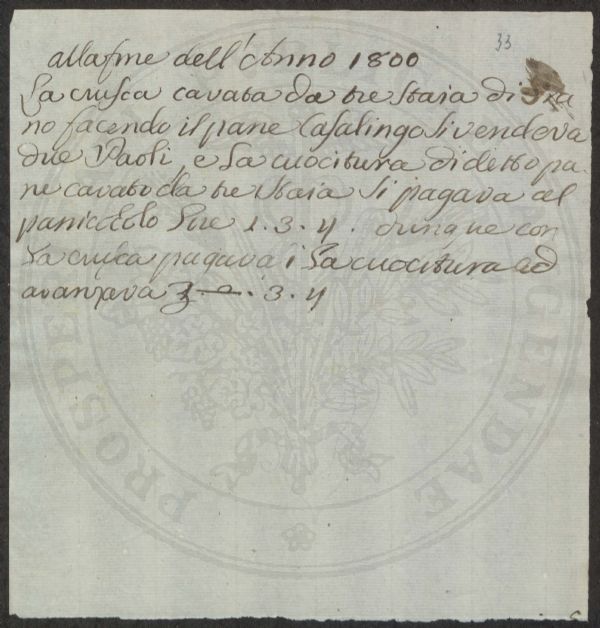 33
alla fine dell'Anno 1800
La crusca cavata da tre Staia di Gra
no facendo il pane Casalingo si vendeva
due Paoli, e La cuocitura di detto pa
ne cavato da tre Staia si pagava al
panicciolo Lire 1. 3. 4. dunque con
La crusca pagava i La cuocitura ed
avanzava 3. 4
PROSPE
GENDAE